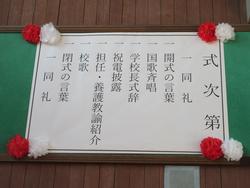 式次第
一同礼
一開式の言葉
一国歌斉唱
一学校長式辞
一祝電披露
一担任・養護教諭紹介
一校歌
一閉式の言葉
一同礼